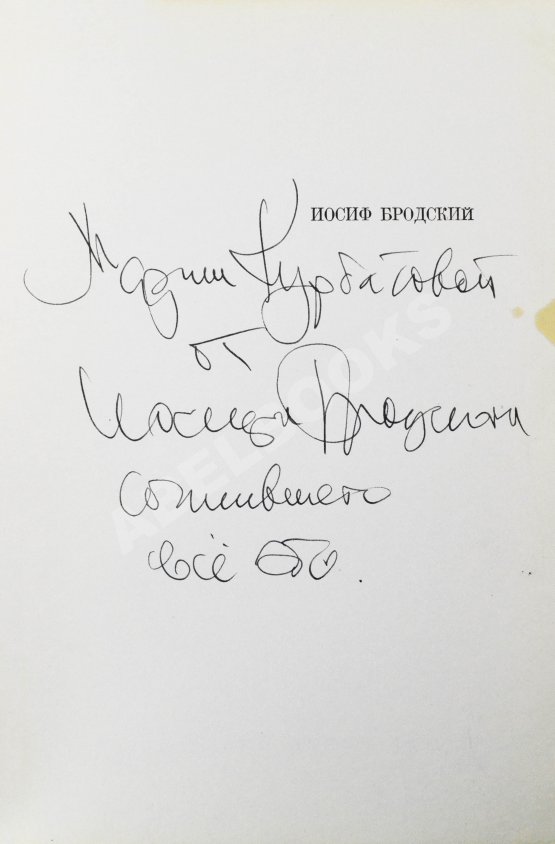 ИОСИФ БРОДСКИЙ
Марии Курбатовой
от
Иосифа Бродского
сочинившего
всё это.
ABELBOOKS